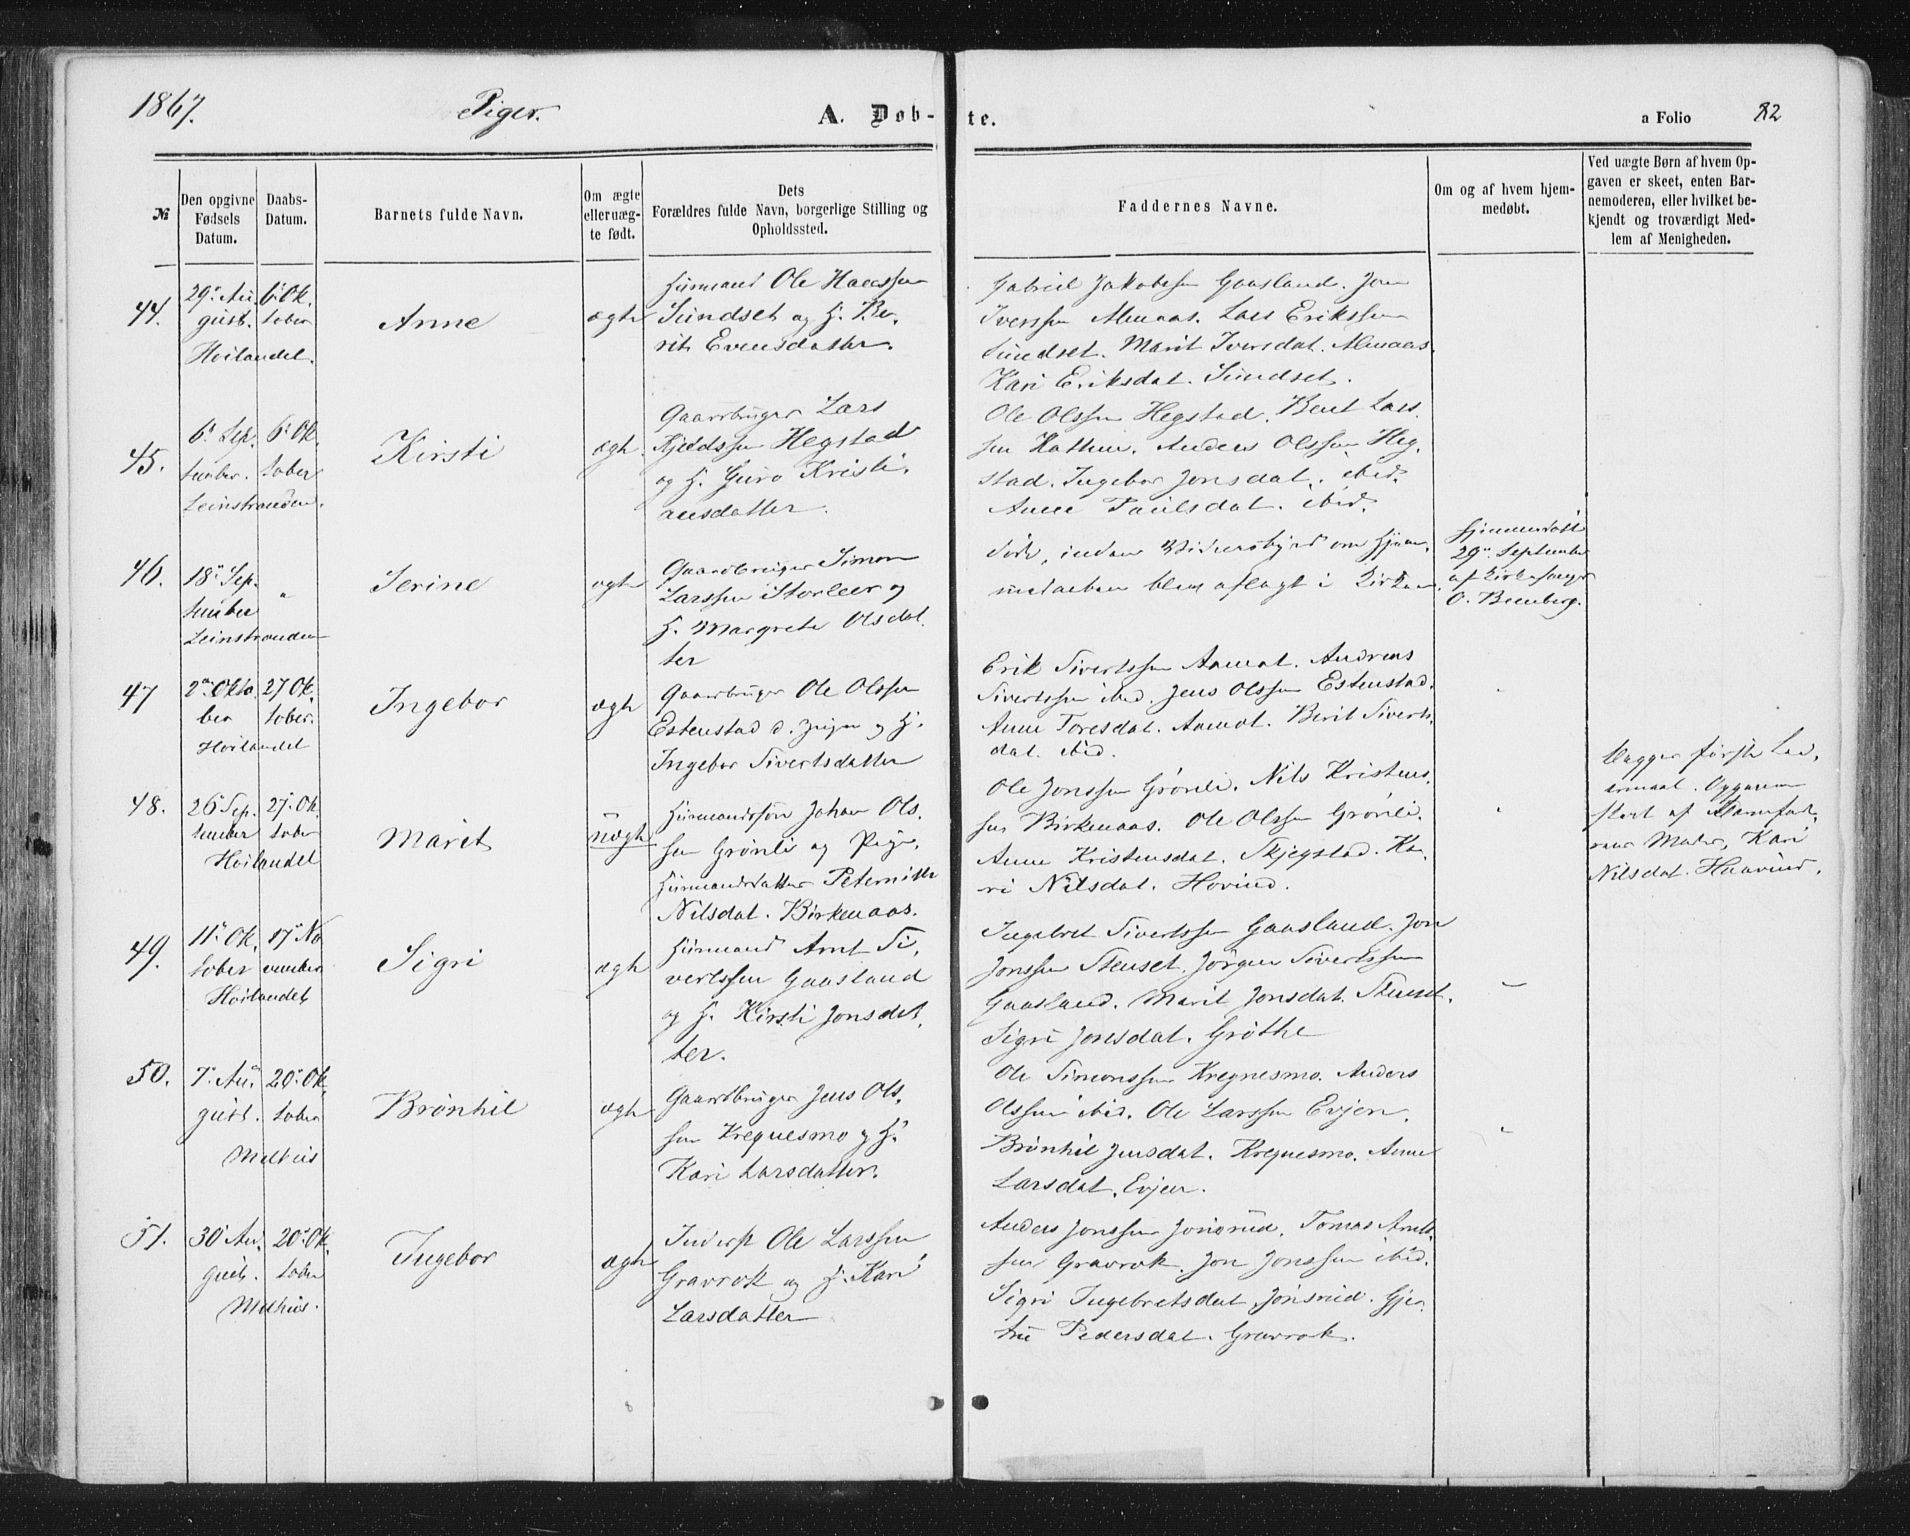 1867. Piger. A. Døb- te. a Folio 82
№
Den opgivne Fødsels Datum.
Daabs-Datum.
Barnets fulde Navn.
Om ægte eller uæg-te født.
Dets Forældres fulde Navn, borgerlige Stilling og Opholdssted.
Faddernes Navne.
Om og af hvem hjem-medøbt.
Ved uægte Børn af hvem Op-gaven er skeet, enten Bar-nemoderen, eller hvilket be-kjendt og troværdigt Med-lem af Menigheden.
44.
29. Au-
gust.
Høilandet.
6. Ok-
tober
Anne
ægte
Huusmand Ole
Sundset og H. Be-
rit Evensdatter.
Gabriel Jakobsen Gaasland. Jon
Iverssen Almaas. Lars Erikssen
Sundset. Marit Iversdat. Almaas.
Kari Eriksdat. Sundset.
45.
6. Sep-
tember.
Leinstranden.
6. Ok-
tober
Kirsti
ægte
Gaardbruger Lars
Kjeldssen Hegstad
og H. Guro Kristi-
ansdatter.
Ole Olssen Hegstad. Bent Lars-
sen. Anders Olssen Heg-
stad. Ingebor Jonsdat. ibid.
Anne Paulsdat. ibid.
46.
18. Sep-
tember
Leinstranden
"
Serine
ægte
Gaardbruger Simon
Larssen Storleer og
H. Margrete Olsdat-
ter
Død, inden Vidnesbyrd om Hjem-
medaaben blev aflagt i Kirken.
Hjemmedøbt
29. September
af Kirkesanger
O.
47
2. Okto-
ber
Høilandet
27 Ok-
tober.
Ingebor
ægte
Gaardbruger Ole Olssen
Estenstad d. yngre og H.
Ingebor Sivertsdatter
Erik Sivertssen Aamot. Andreas
Sivertssen ibid. Jens Olssen Estenstad.
Anne Toresdat. Aamot. Berit Siverts-
dat. ibid.
48.
26 Sep-
tember
Høilandet
27. Ok-
tober
Marit
uægte
Huusmandssøn Johan Ols-
sen Grønli og Pige,
Huusmandsdatter Peternille
Nilsdat. Birkenaas.
Ole Jonssen Grønli. Nils Kristens-
sen Birkenaas. Ole Olssen Grønli.
Anne Kristensdat. Skjegstad. Ka-
ri Nilsdat. Hovind.
Begges første Lei-
ermaal. Opgaven
skeet af Barnefad-
rens Moder, Kari
Nilsdat.
49.
11. Ok-
tober
Høilandet
17. No-
vember
Sigri
ægte
Huusmand Arnt Si-
vertssen Gaasland
og H. Kirsti Jonsdat-
ter.
Ingebret Sivertssen Gaasland. Jon
Jonssen Stenset. Jørgen Sivertssen
Gaasland. Marit Jonsdat. Stenset.
Sigri Jonsdat. Grøthe
50.
7. Au-
gust.
Melhus
20. Ok-
tober
Brønhil
ægte
Gaardbruger Jens Ols-
sen Kregnesmo og H.
Kari Larsdatter.
Ole Simonssen Kregnesmo. Anders
Olssen ibid. Ole Larssen Evjen.
Brønhil Jensdat. Kregnesmo. Anne
Larsdat. Evjen.
51.
30 Au-
gust.
Melhus.
20. Ok-
tober
Ingebor
ægte
Inderst Ole Larssen
Gravrok og H. Kari
Larsdatter
Anders Jonssen Jonsrud. Tomas Arnts-
sen Gravrok. Jon Jonssen ibid.
Sigri Ingebretsdat. Jonsrud. Gjer-
tru Pedersdat. Gravrok.